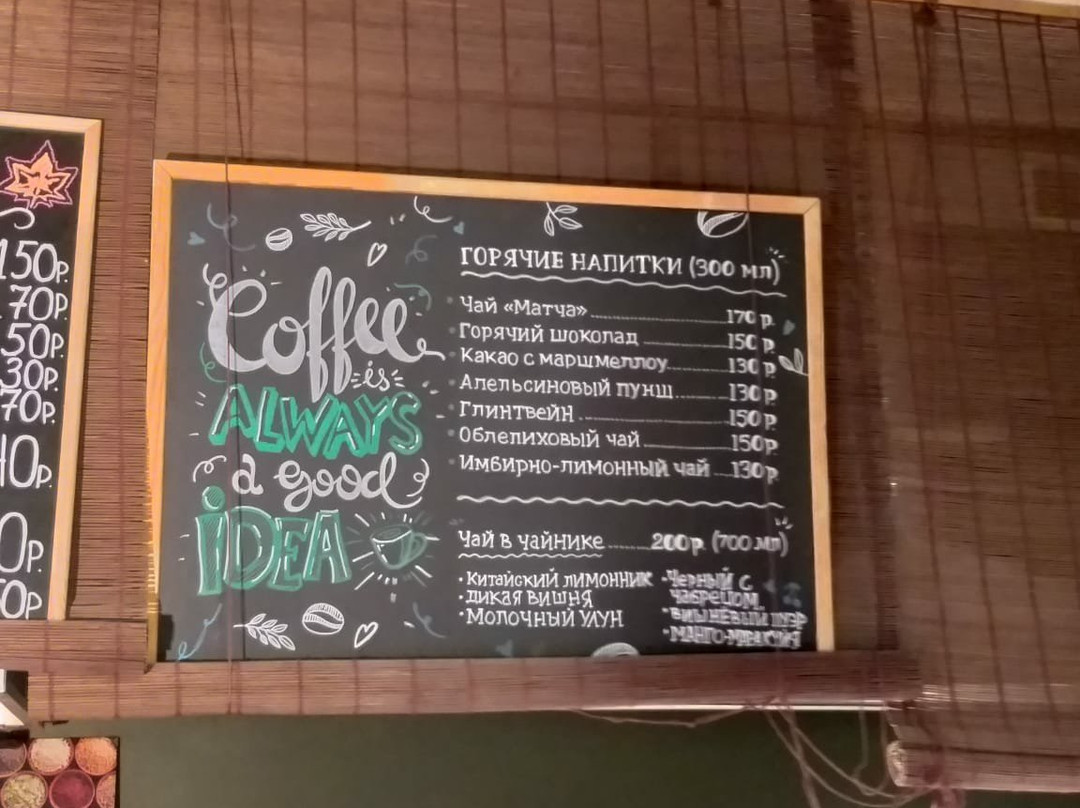 150р.
70р.
50р.
30р.
70р.
40р.
0р.
50р
Coffee
is
ALWAYS
a good
iDEA
ГОРЯЧИЕ НАПИТКИ (300 мл)
Чай «Матча» 170 р.
Горячий шоколад 150 р.
Какао с маршмеллоу 130 р
Апельсиновый пунш 130р
Глинтвейн 150р.
Облепиховый чай 150р.
Имбирно-лимонный чай 130р
Чай в чайнике 200р. (700 мл)
• Китайский лимонник
• Дикая вишня
• Молочный улун
• Черный с
чабрецом
• Вишнёвый пуэр
• Манго-маракуйя